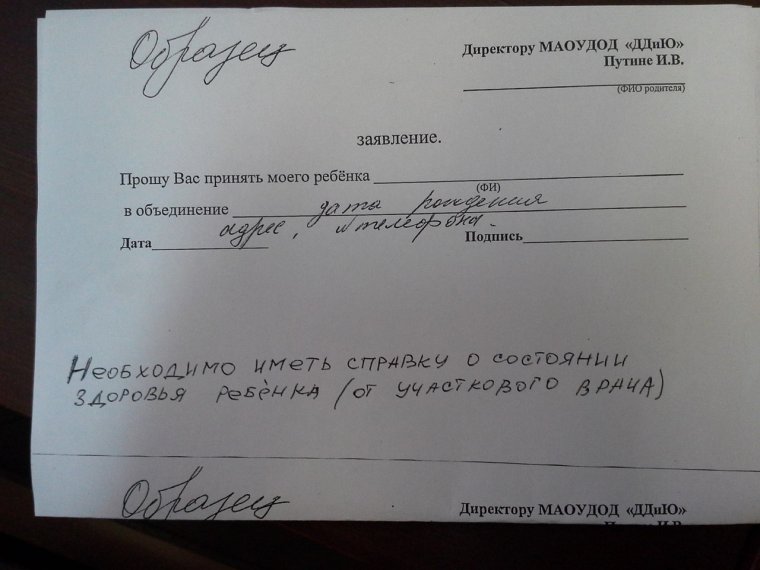 Образец
Директору МАОУДОД «ДДиЮ»
Путине И.В.
(ФИО родителя)
заявление.
Прошу Вас принять моего ребёнка
(ФИ)
в объединение дата рождения
адрес, № телефона.
Дата Подпись
Необходимо иметь справку о состоянии
здоровья ребёнка (от участкового врача)
Образец
Директору МАОУДОД «ДДиЮ»
Путине И.В.